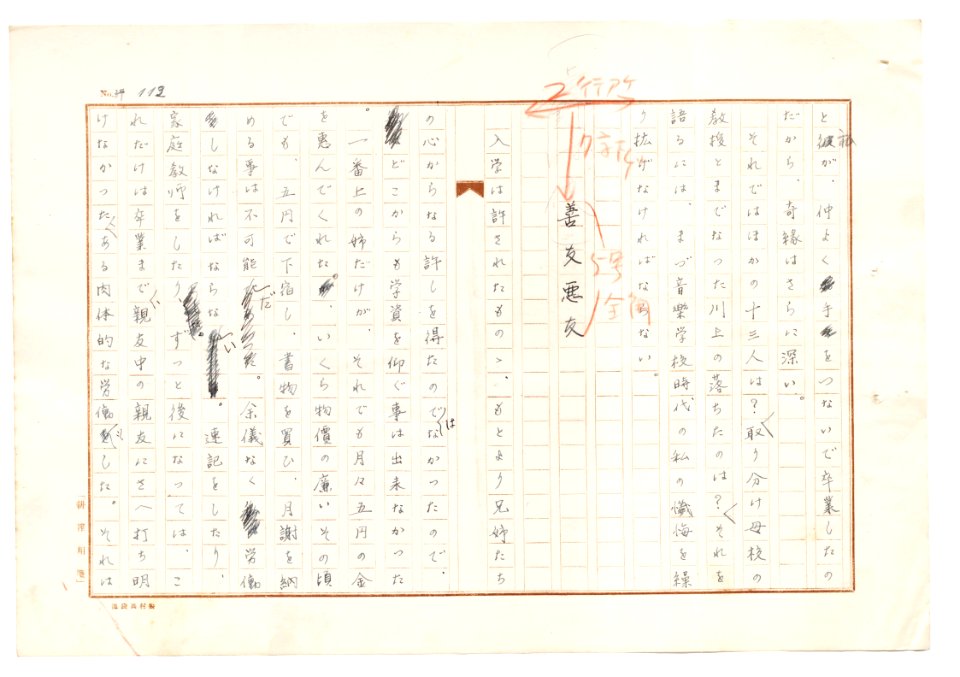 No. 112
と私が、仲よく手をつないで卒業したの
だから、奇縁はさらに深い。
それではほかの十三人は?取り分け母校の
教授とまでなつた川上の落ちたのは?それを
語るには、まづ音樂学校時代の私の懺悔を繰
り拡げなければならない。
2行アケ
7字下ケ
善友悪友
5号
入学は許されたものゝ、もとより兄姉たち
の心からなる許しを得たのではなかつたので、
どこからも学資を仰ぐ事は出来なかつた
。一番上の姉だけが、それでも月々五円の金
を恵んでくれた。いくら物價の廉いその頃
でも、五円で下宿し、書物を買ひ、月謝を納
める事は不可能だ。余儀なく労働
しなければならない。速記をしたり、
家庭教師をしたり、ずつと後になつては、こ
れだけは卒業まで親友中の親友にさへ打ち明
けなかつたある肉体的な労働もした。それは